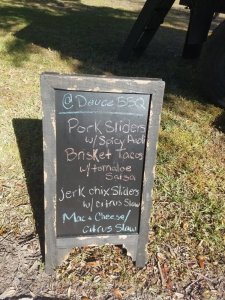 @ Deuce 55Q
Pork Sliders
w/ Spicy
Brisket Tacos
w/ tomatoe
Salsa
Jerk chix Sliders
w/ citrus Slaw
Mac & Cheese/
citrus Slaw